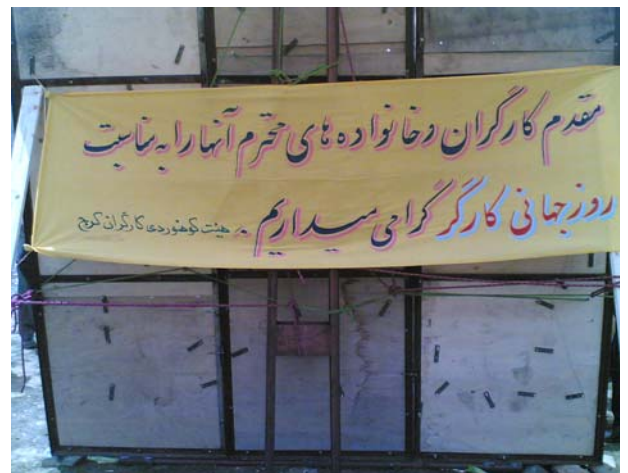 مقدم کارگران و خانواده های محترم آنها را به مناسبت
روز جهانی کارگر گرامی میداریم - هیئت کوهنوردی کارگران کرج